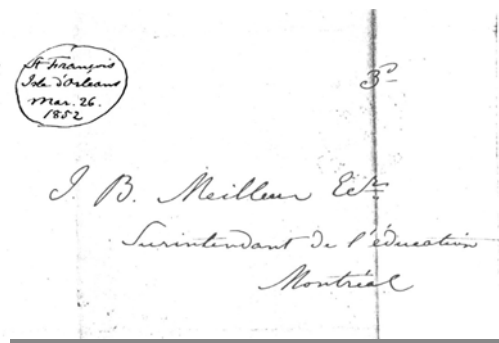 St François
Isle d'Orleans
Mar. 26.
1852
3ᵈ
J. B. Meilleur Ecr
Surintendant de l'éducation
Montréal